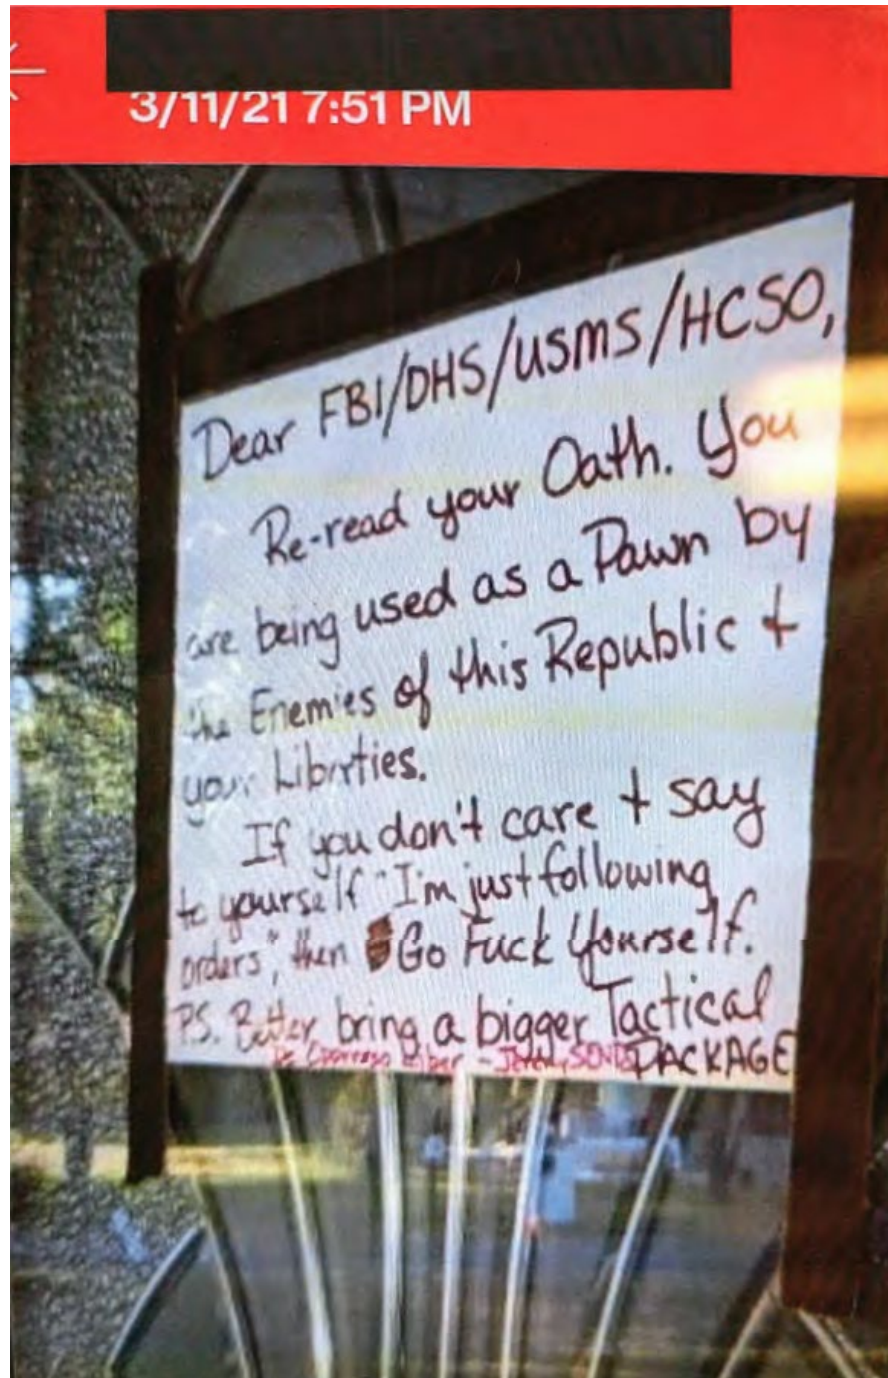 3/11/21 7:51 PM
Dear FBI/DHS/USMS/HCSO,
Re-read your Oath. You
are being used as a Pawn by
the Enemies of this Republic +
your Liberties.
If you don't care + say
to yourself "I'm just following
orders", then Go Fuck Yourself.
P.S. Better bring a bigger Tactical
PACKAGE
De Liber - Jeremy SENDS